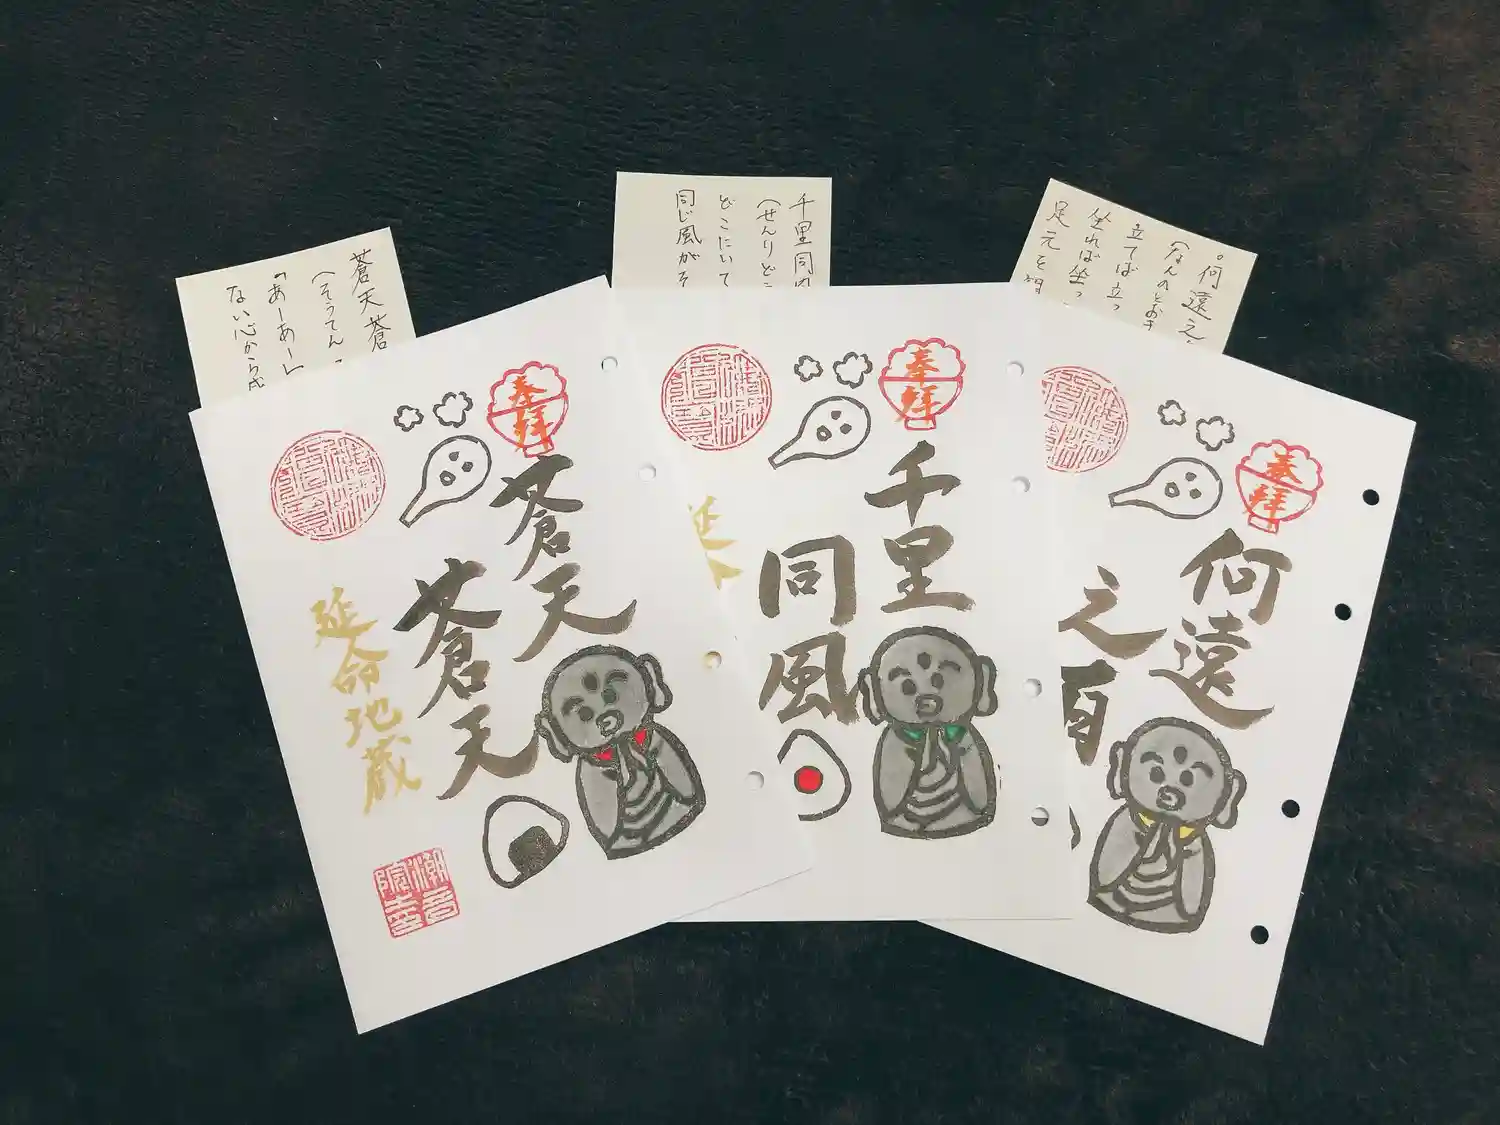 蒼天蒼
(そうてん
「あーあー」
ない心から
千里同風
(せんりどう
どこにいて
同じ風がそ
。何遠之
(なんのとおき
立てば立っ
坐れば坐っ
足元を
奉拝
蒼天
蒼天
延命地蔵
潮音
院幸
奉拝
千里
同風
延命
奉拝
何遠
之有